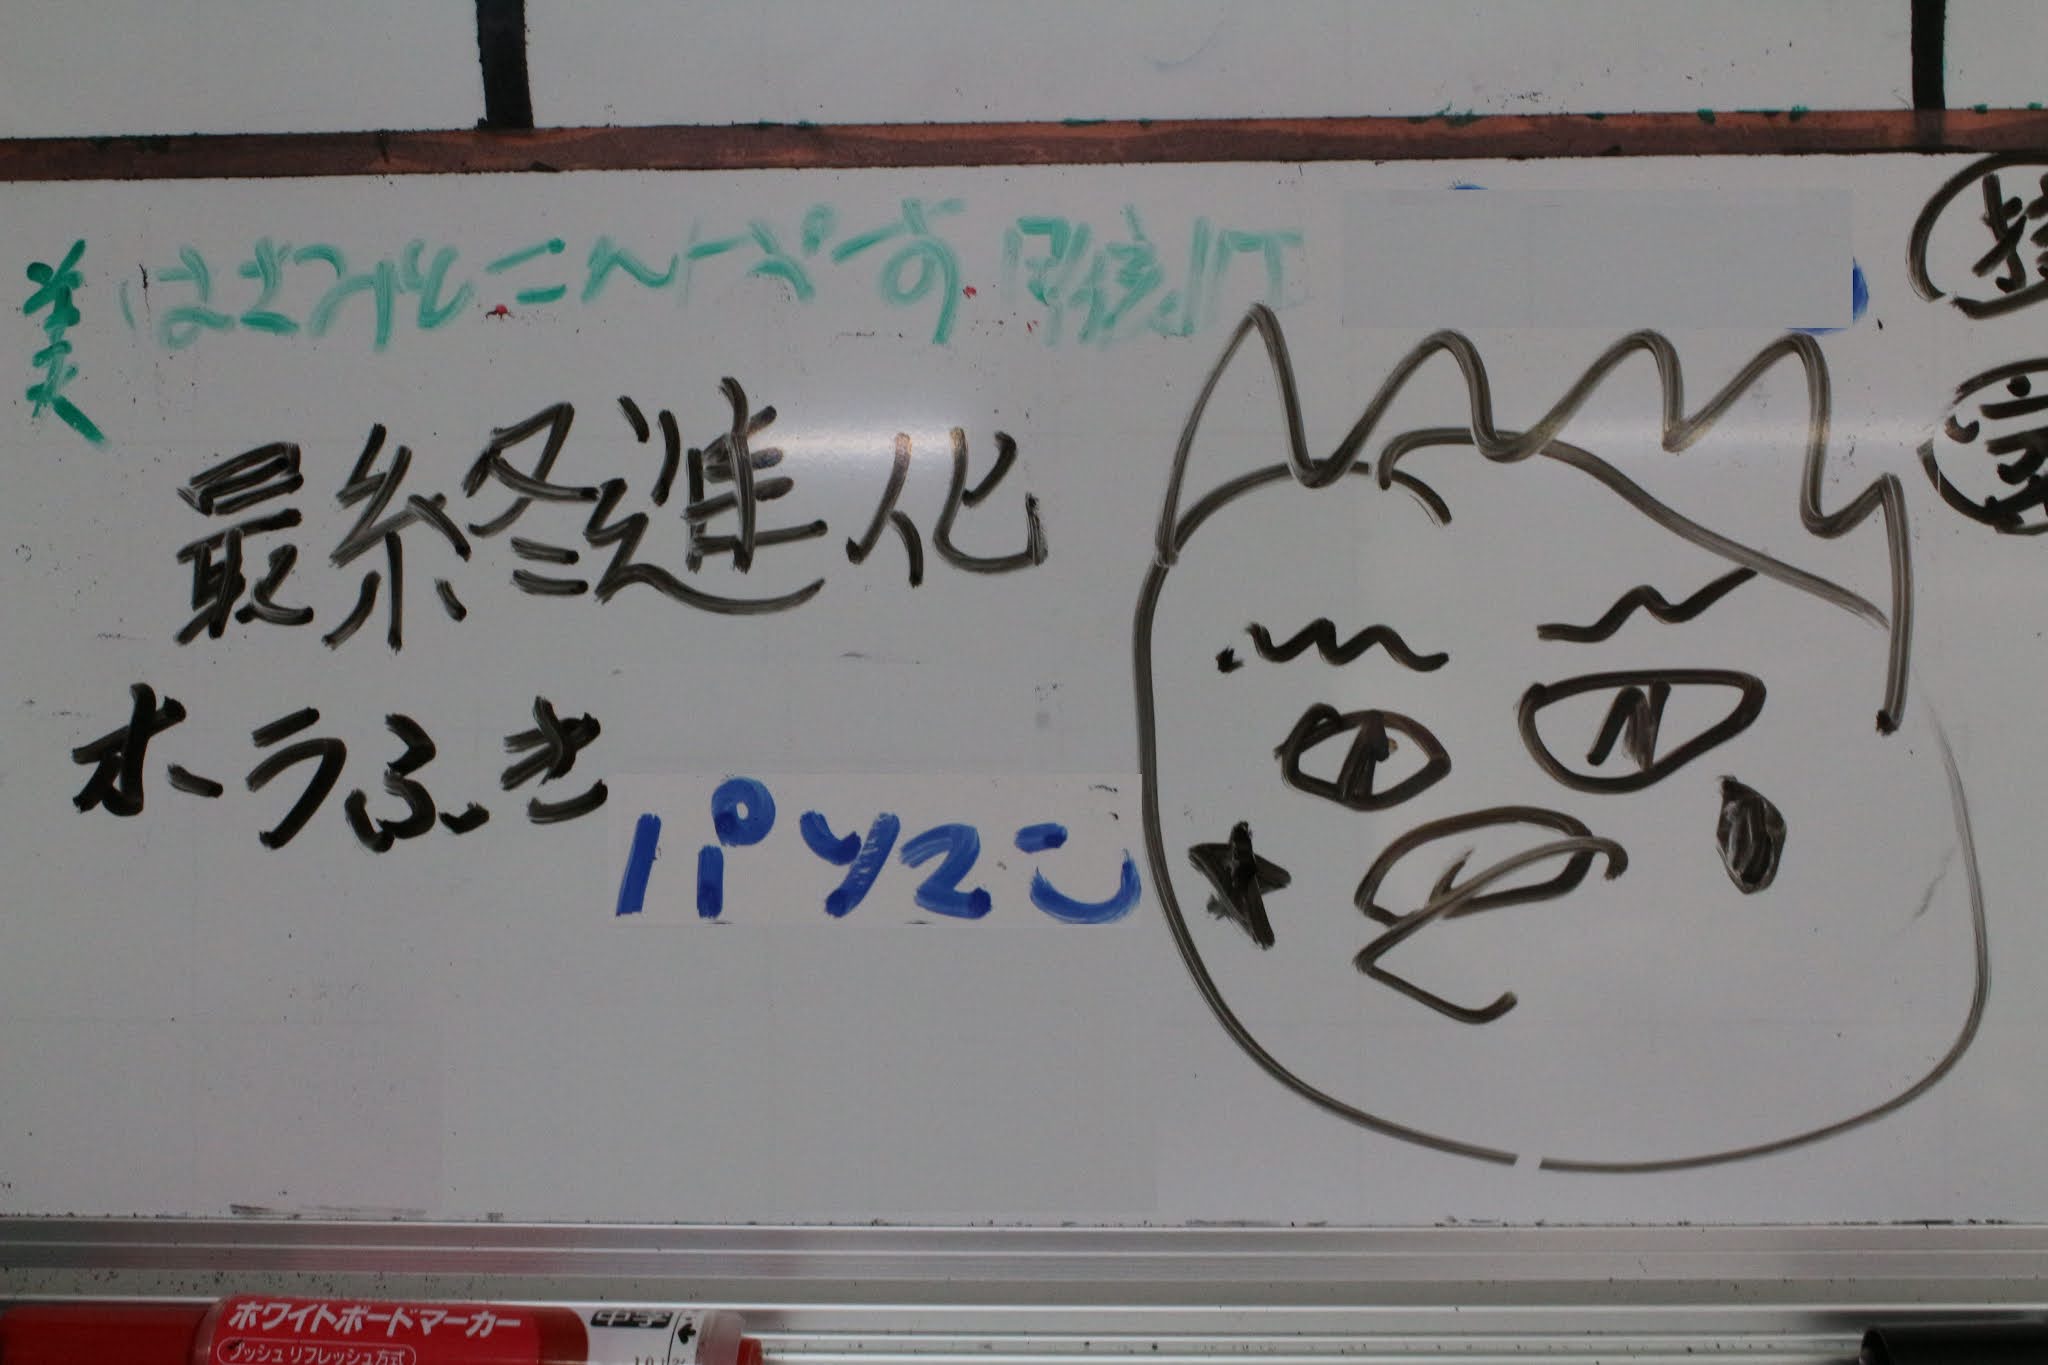 美 はさみとこんパす
最終進化
ホラふき パソマニ
特
ホワイトボードマーカー 中字
プッシュリフレッシュ方式